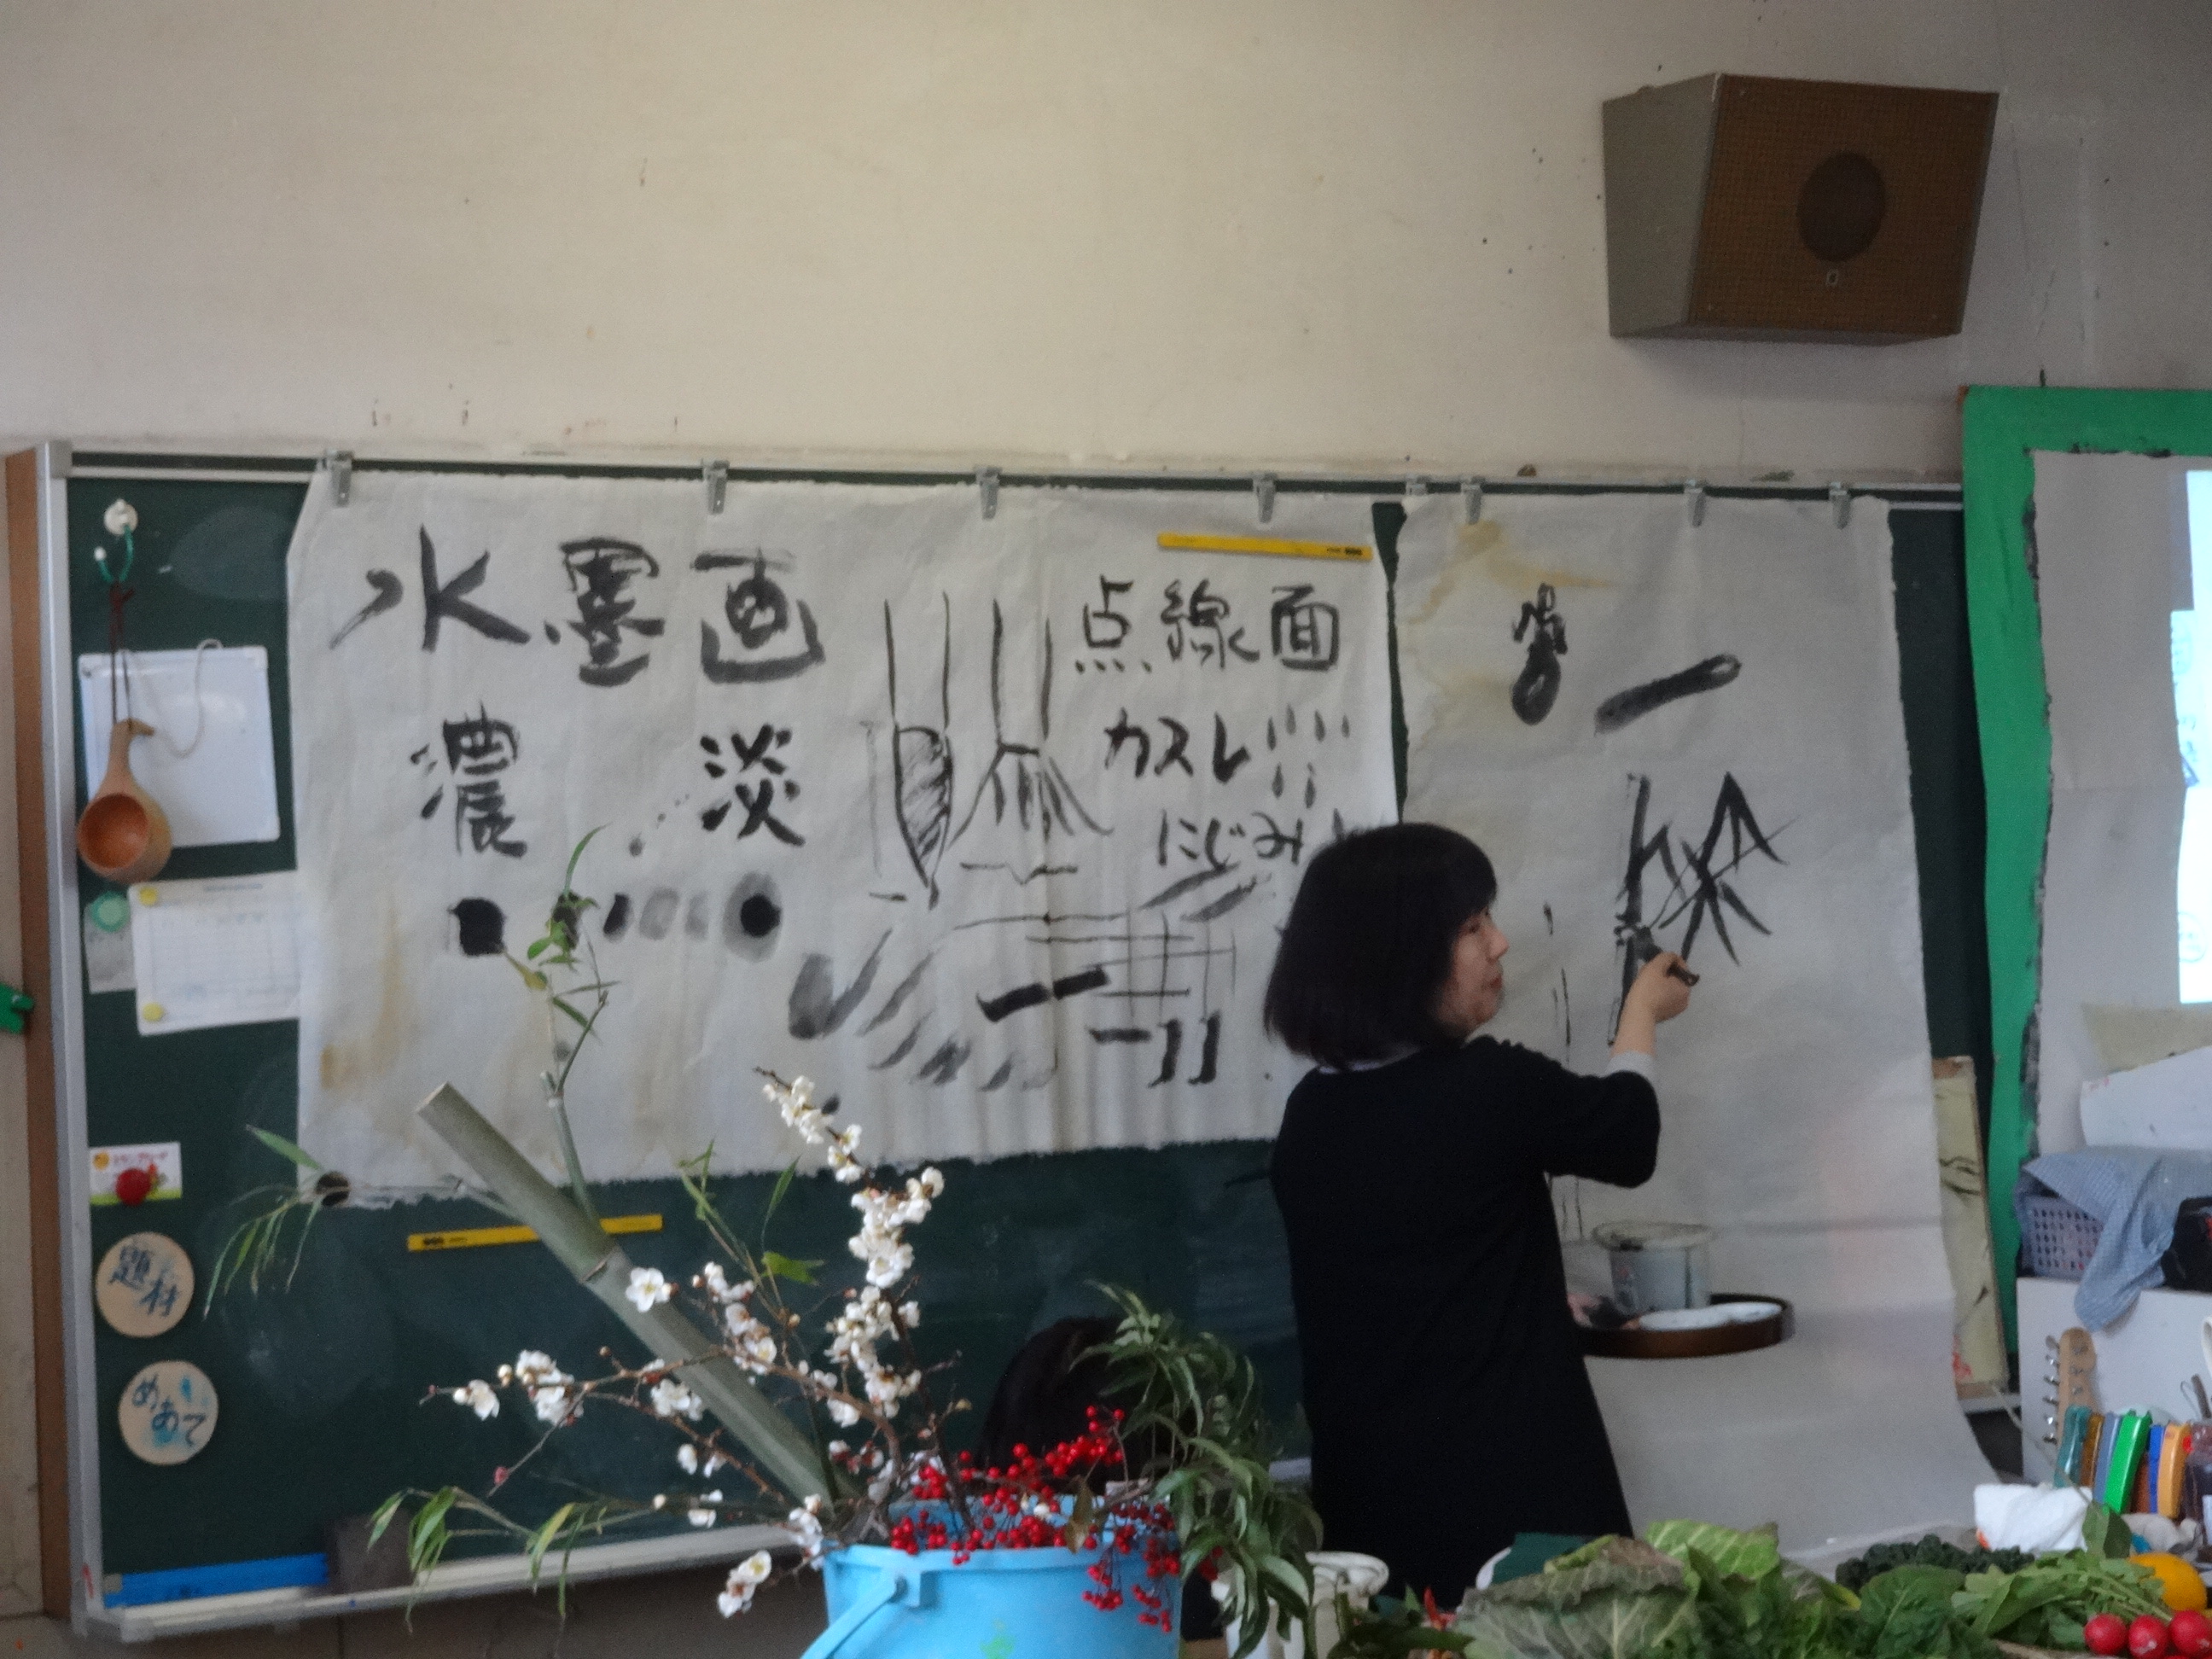 水墨画
濃 淡
点線面
カスレ
にじみ
題材
めあて